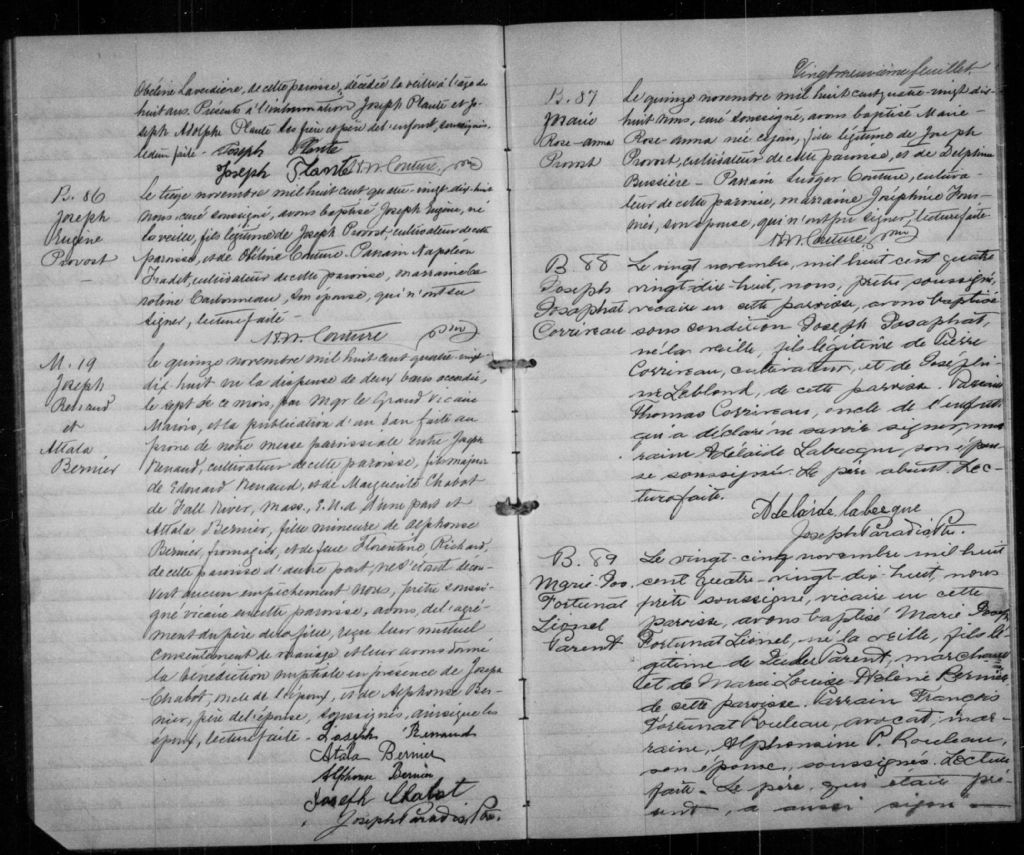 Obéline Laverdière, de cette paroisse, décédée la veille à l'âge de
huit ans. Présents à l'inhumation Joseph Plante et Jo-
seph Adolphe Plante frère et père de l'enfant, soussignés,
lecture faite. Joseph Plante
Joseph Plante N.M. Couture, ptre
B. 86
Joseph
Eugène
Provost
Le treize novembre mil huit cent quatre-vingt-dix-huit
nous curé soussigné, avons baptisé Joseph Eugène, né
la veille, fils légitime de Joseph Provost, cultivateur de cette
paroisse, et de Obéline Couture. Parrain Napoléon
Fradet, cultivateur de cette paroisse, marraine Ca-
roline Carbonneau, son épouse, qui n'ont su
signer, lecture faite.
N.M. Couture ptre
M. 19
Joseph
Renaud
et
Attala
Bernier
Le quinze novembre mil huit cent quatre-vingt
dix huit vu la dispense de deux bans accordée,
le sept de ce mois, par Mgr le Grand Vicaire
Marois, et la publication d'un ban faite au
prone de notre messe paroissiale entre Joseph
Renaud, cultivateur de cette paroisse, fils majeur
de Edouard Renaud, et de Marguerite Chabot
de Fall River, Mass., E.U.d d'une part et
Attala Bernier, fille mineure de Alphonse
Bernier, fromager, et de feue Florentine Richard,
de cette paroisse d'autre part, ne s'étant décou-
vert aucun empêchement nous, prêtre soussi-
gné vicaire en cette paroisse, avons, de l'agré-
ment du père de la fille, reçu leur mutuel
consentement de mariage et leur avons donné
la bénédiction nuptiale en présence de Joseph
Chabot, oncle de l'époux, et de Alphonse Ber-
nier, père de l'épouse, soussignés, ainsi que les
époux, lecture faite. Joseph Renaud
Atala Bernier
Alphonse Bernier
Joseph Chabot
Joseph Paradis, Ptre.
Vingt neuvième feuillet.
B. 87
Marie
Rose-anna
Provost
Le quinze novembre mil huit cent quatre-vingt dix-
huit nous, curé soussigné, avons baptisé Marie
Rose-anna née ce jour, fille légitime de Joseph
Provost, cultivateur de cette paroisse, et de Delphine
Bussière. Parrain Ludger Couture, cultiva-
teur de cette paroisse, marraine Joséphine Four-
nier, son épouse, qui n'ont pu signer, lecture faite.
N.M. Couture, ptre
B. 88
Joseph
Josaphat
Corriveau
Le vingt novembre, mil huit cent quatre
vingt-dix-huit, nous, prêtre, soussigné,
vicaire en cette paroisse, avons baptisé
sous condition Joseph Josaphat,
né la veille, fils légitime de Pierre
Corriveau, cultivateur, et de Joséphi-
ne Leblond, de cette paroisse. Parrain
Thomas Corriveau, oncle de l'enfant
qui a déclaré ne savoir signer, mar-
raine Adélaïde Labrecque, son épou-
se soussignée. Le père absent. Lec-
ture faite.
Adelaïde labecque
Joseph Paradis Ptr.
B. 89
Marie Jos.
Fortunat
Lionel
Parent
Le vingt-cinq novembre mil huit
cent quatre-vingt-dix-huit, nous
prêtre soussigné, vicaire en cette
paroisse, avons baptisé Marie Joseph
Fortunat Lionel, né la veille, fils lé-
gitime de Parent, marchand
et de Marie Louise Hélène Bernier
de cette paroisse. Parrain François
Fortunat Rouleau, avocat, mar-
raine, Alphonsine P. Rouleau,
son épouse, soussignés. Lecture
faite. Le père, qui était pré-
sent, a aussi signé